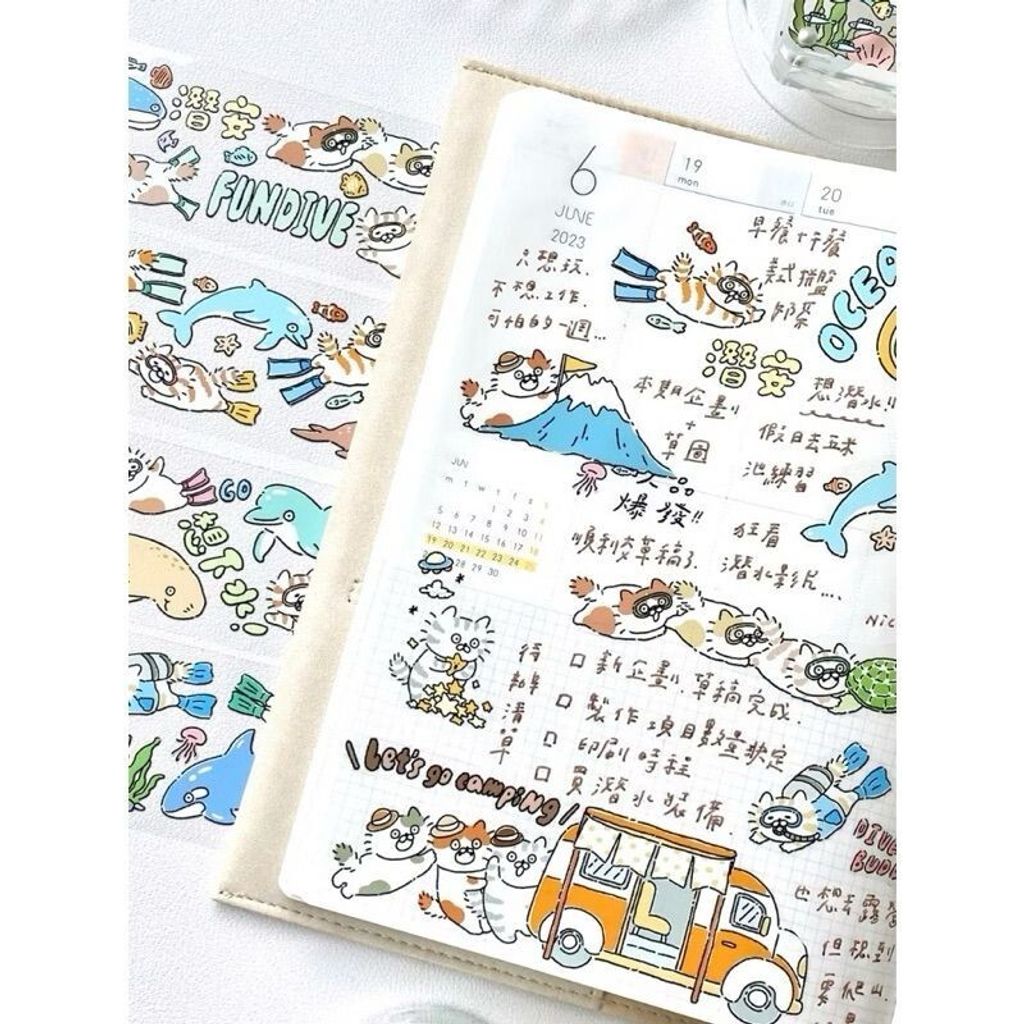 潛安
FUNDIVE
GO
潛下水
6
JUNE
2023
19
mon
20
tue
只想玩.
不想工作.
可怕的一週...
早餐+午餐
美式拼盤
奶茶
OCEA
潛安
本期企劃
+
草圖
想潛水!!
假日去五米
池練習
人品
爆發!!
順利交草稿了
狂看
潛水影片....
JUN
m t w t f s s
1 2 3 4
5 6 7 8 9 10 11
12 13 14 15 16 17 18
19 20 21 22 23 24 25
28 29 30
待辦清單
□ 新企劃.草稿完成.
□ 製作項目數量決定
□ 印刷時程
□ 買潛水裝備.
\Let's go campiNg/
DIVE
BUDD
也想去露營
但想到
要爬山